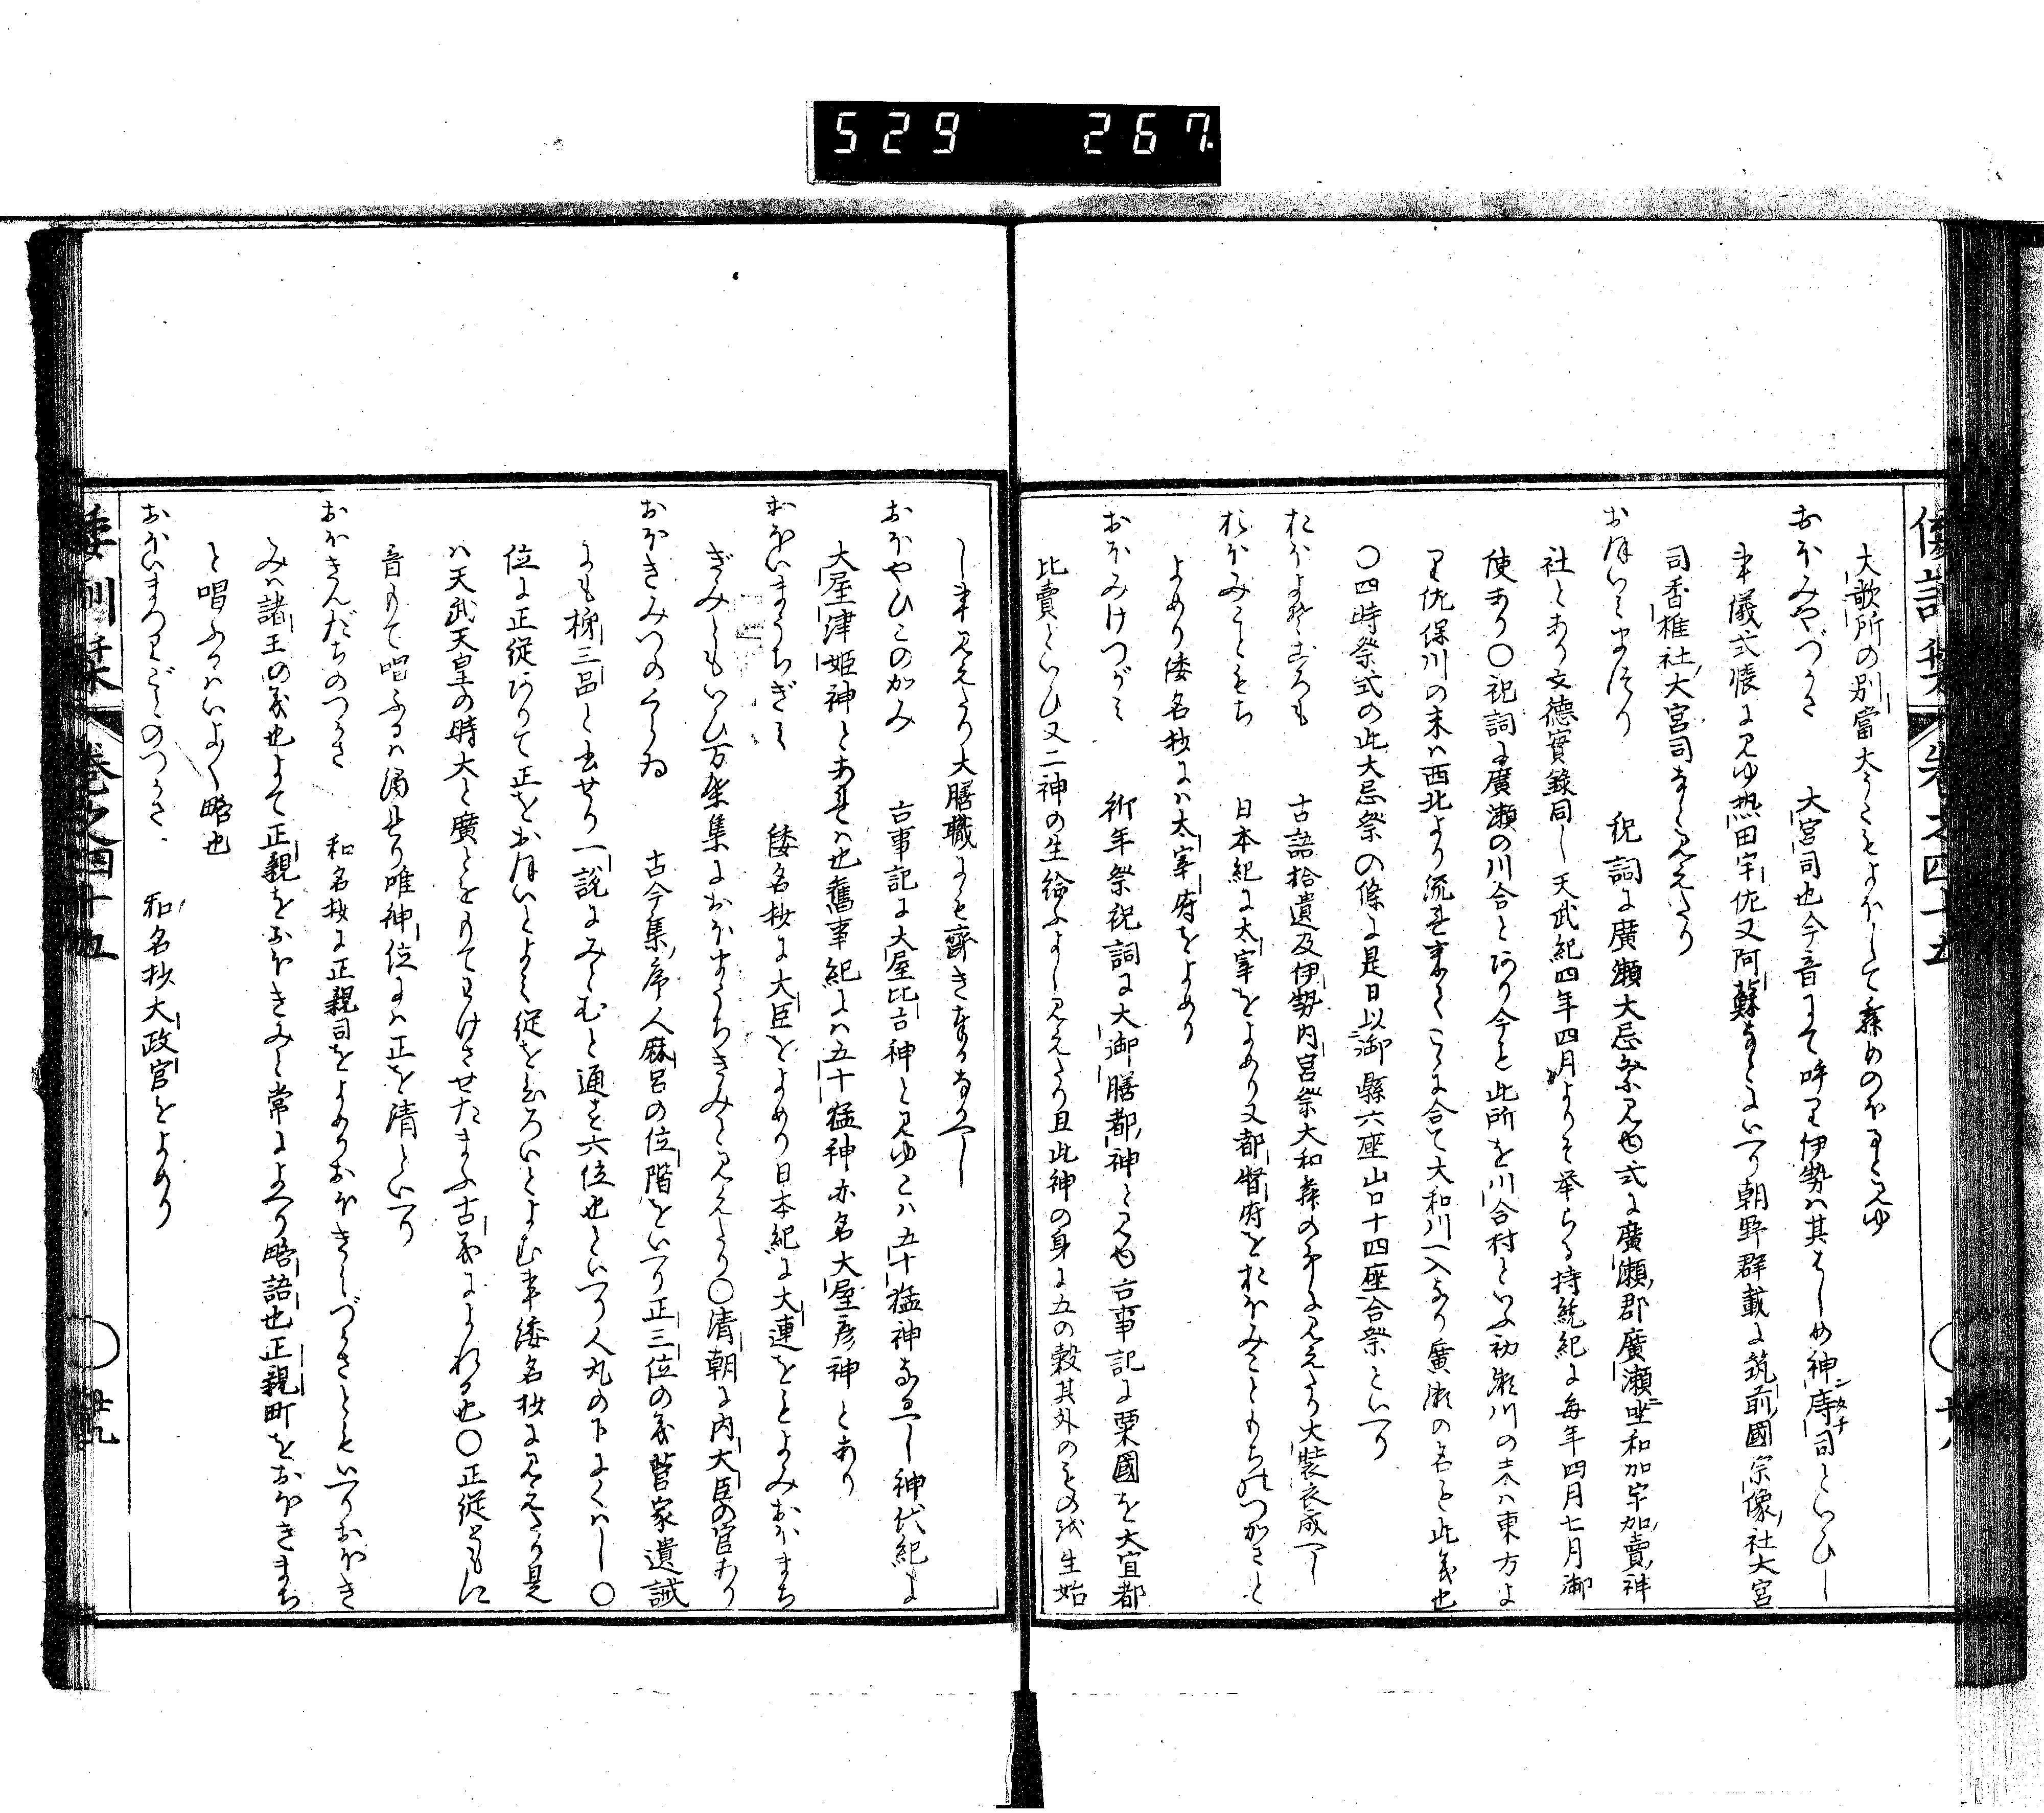 529 267
倭訓栞 卷之四十五
大歌所の別當大うたをよほして舞めのほすとみゆ
おほみやづかさ 大宮司也今音にて呼り伊勢は其はしめ神庤司といひし
事儀式帳にみゆ熱田宇佐又阿蘇なとにいへり朝野群載に筑前國宗像社大宮
司香椎社大宮司なとみえたり
おほいみまつり 祝詞に廣瀬大忌祭見ゆ式に廣瀬郡廣瀬坐和加宇加賣神
社とあり文德實錄同し天武紀四年四月よりそ挙らる持統紀に毎年四月七月御
使あり〇祝詞に廣瀬の川合とあり今も此所を川合村といふ初瀬川の末は東方よ
り佐保川の末は西北より流れ来てこゝに合て大和川へ入なり廣瀬の名も此義也
〇四時祭式の此大忌祭の條に是日以御縣六座山口十四座合祭といへり
おほよそごろも 古語拾遺及伊勢内宮祭大和舞の事にみえたり大裝衣成へし
おほみこともち 日本紀に太宰をよめり又都督府をおほみこともちのつかさと
よめり倭名抄には太宰府をよめり
おほみけつがみ 祈年祭祝詞に大御膳都神と見ゆ古事記に粟國を大宜都
比賣といひ又二神の生給ふよしみえたり且此神の身に五の穀其外のもの越生始
し事みえたり大膳職にも齋き奉るなるへし
おほやひこのかみ 古事記に大屋比古神と見ゆこは五十猛神なるへし神代紀に
大屋津姫神とあれは也舊事紀には五十猛神亦名大屋彦神とあり
おほいまうちぎみ 倭名抄に大臣をよめり日本紀に大連をもよみおほまち
ぎみともいひ万葉集におほまうちきみとみえたり〇清朝に内大臣の官あり
おほきみつのくらゐ 古今集序人麻呂の位階をいへり正三位の義菅家遺誡
にも梯三品と書せり一説にみくむと通す六位也といへり人丸の下にくはし〇
位に正從ありて正をおほいとよみ從をひろいとよむ事倭名抄にみえたり是
は天武天皇の時大と廣とをもてわけさせたまふ古義によれる也〇正從ともに
音もて唱ふるは濁れり唯神位には正を清といへり
おほきんだちのつかさ 和名抄に正親司をよめりおほきんづかさともいへりおほき
みは諸王の義也よて正親をおほきみと常によへり略語也正親町をおほきまち
と唱ふるはいよ〱略也
おほいまつりごとのつかさ 和名抄大政官をよめり
倭訓栞 卷之四十五 〇廿九